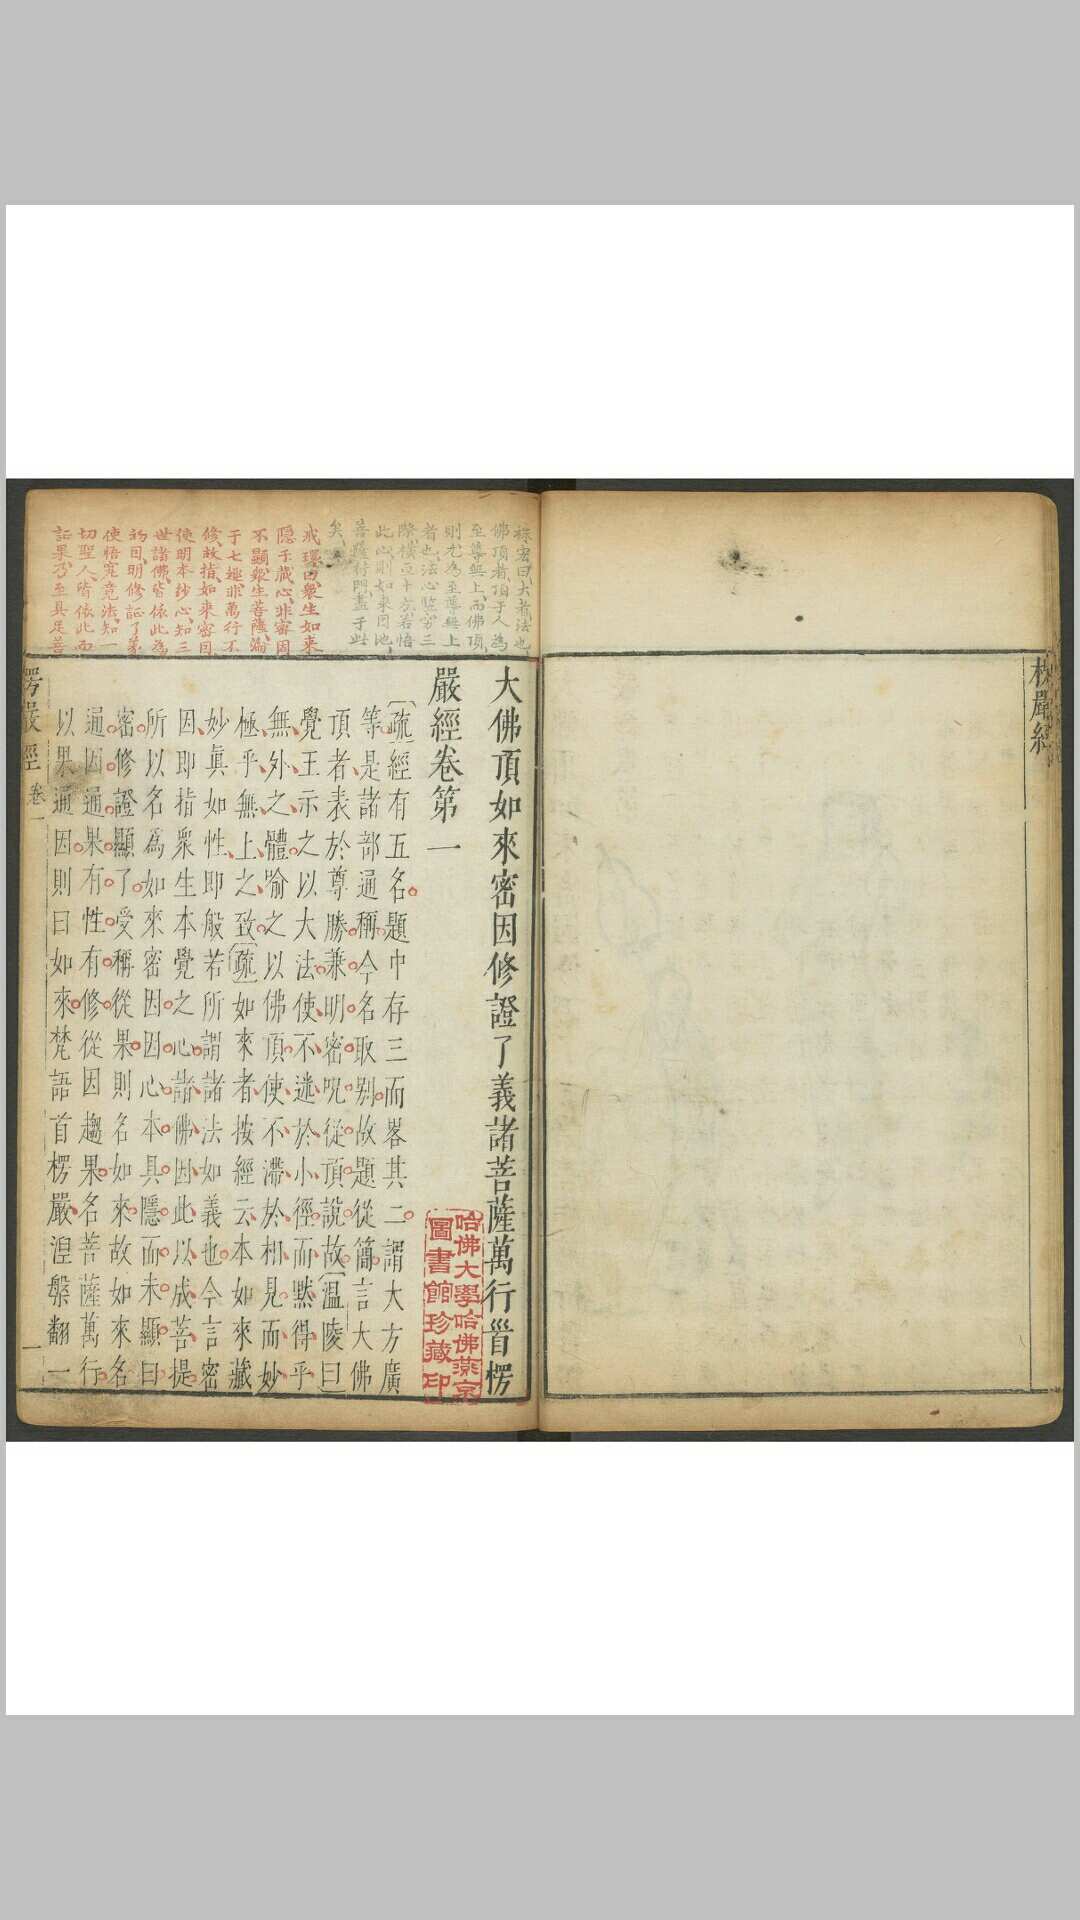 楞嚴經
大佛頂如來密因修證了義諸菩薩萬行首楞
嚴經卷第一
疏經有五名題中存三而畧其二謂大方廣
等是諸部通稱今名取別故題從簡言大佛
頂者表於尊勝兼明密呪從頂說故温陵曰
覺王示之以大法使不迷於小徑而默得乎
無外之體喻之以佛頂使不滯於相見而妙
極乎無上之致疏如來者按經云本如來藏
妙眞如性即般若所謂諸法如義也今言密
因即指衆生本覺之心諸佛因此以成菩提
所以名爲如來密因因心本具隱而未顯曰
密修證顯了受稱從果則名如來故如來名
通因通果有性有修從因趨果名菩薩萬行
以果通因則曰如來梵語首楞嚴涅槃翻一
楞嚴經 卷一 一
袾宏曰大者法也
佛頂者頂于人為
至尊無上而佛頂
則尤為至尊無上
者也法心豎窮三
際橫亘十方若悟
此心則如來因地
菩薩行門盡于此
矣
戒環曰衆生如來
隱于藏心非密因
不顯衆生菩薩淪
于七趣非萬行不
修故指如來密因
使明本妙心知三
世諸佛皆依此為
初因明修証了義
使悟究竟法知一
切聖人皆依此而
証果乃至具足菩
哈佛大學哈佛燕京
圖書館珍藏印